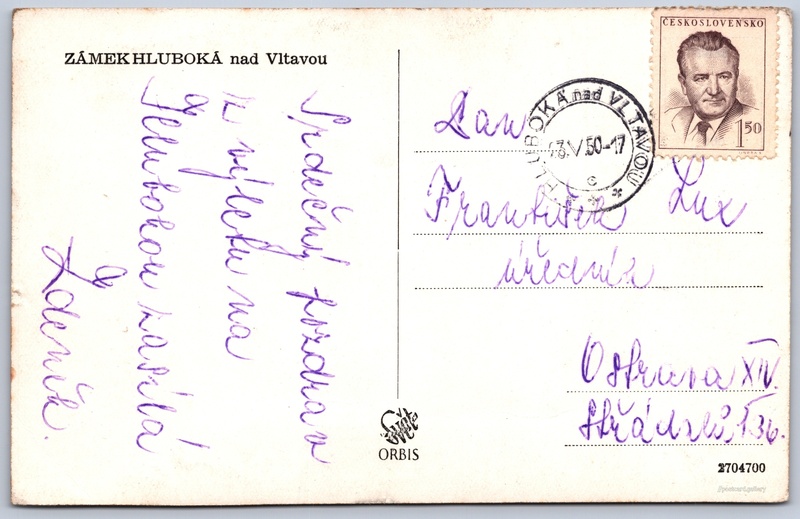 ZÁMEK HLUBOKÁ nad Vltavou
Srdečný pozdrav
z výletu na
Hlubokou zasílá
Zdeněk.
ČESKOSLOVENSKO
1.50
HLUBOKÁ nad VLTAVOU
-3.V.50-17
c
Pan
František Lux
úředník
Ostrava XIV.
136.
Svět
ORBIS
2704700